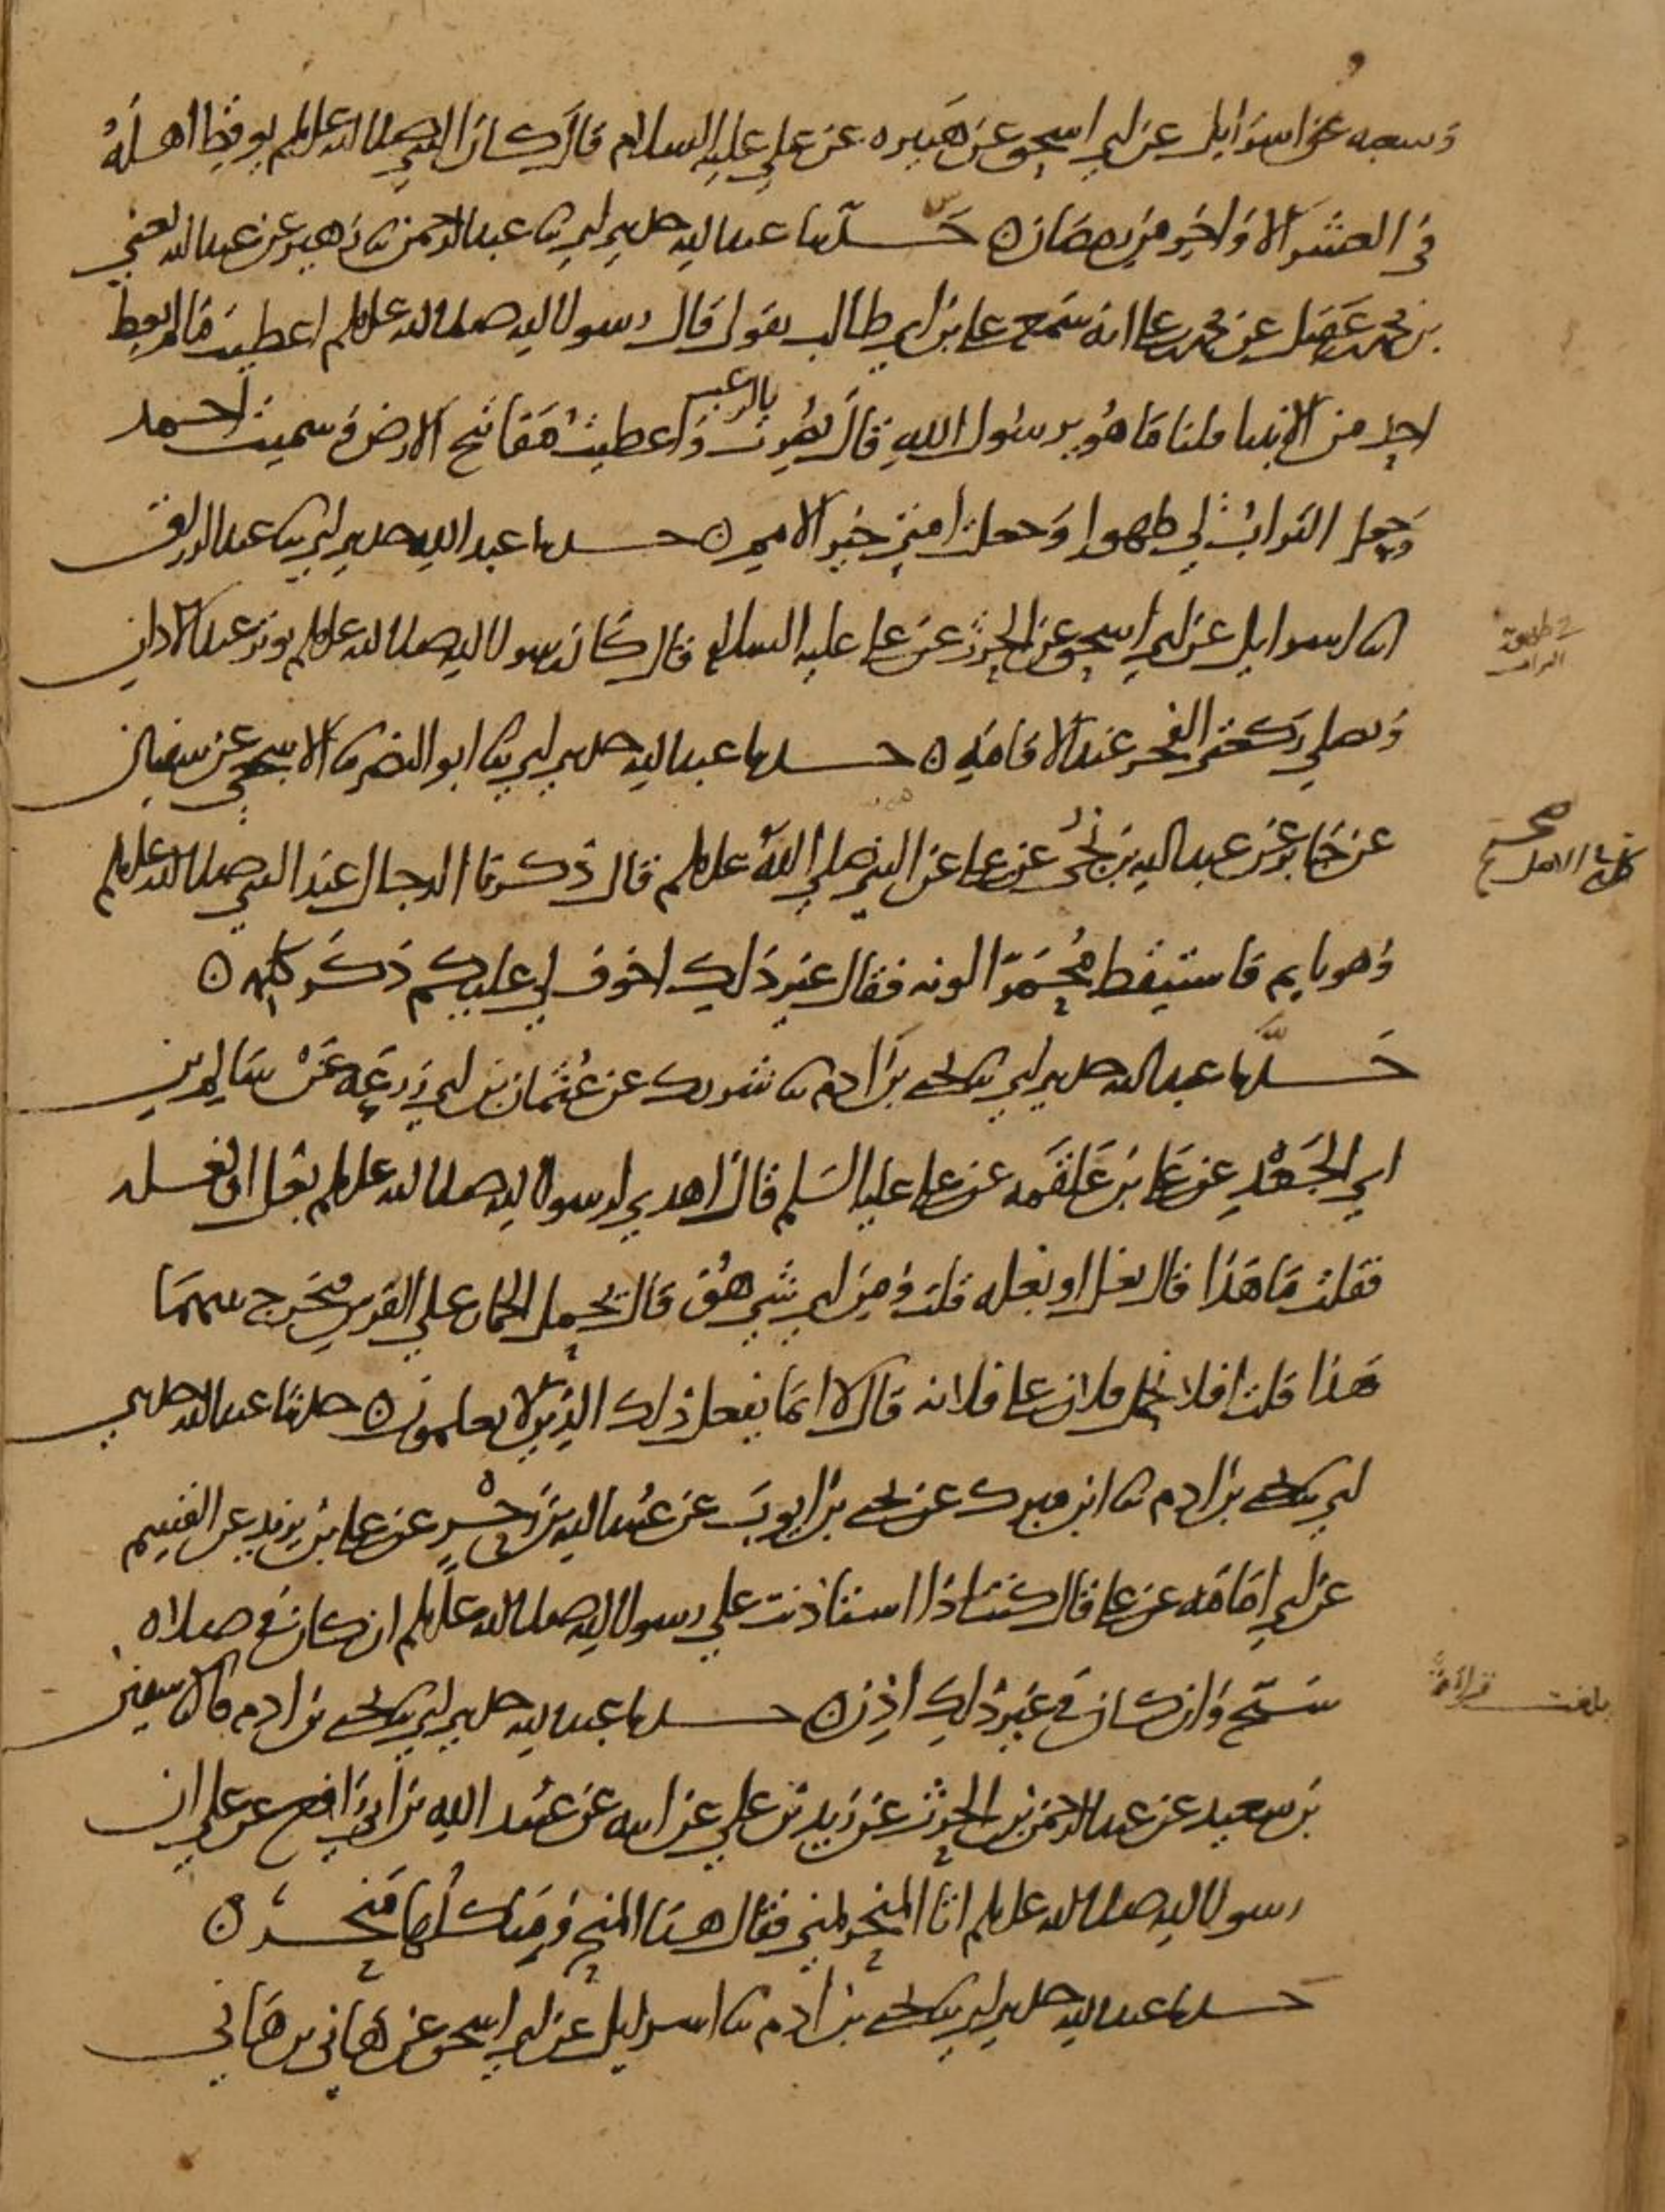 وسعبه عن اسرايل عن ابي اسحق عن هبيره عن علي عليه السلام قال كان النبي صلى الله عليه وسلم يوقظ اهله
في العشر الاواخر من رمضان ه حدثنا عبد الله حدثني ابي ثنا عبد الرحمن ثنا زهير عن عبد الله يعني
بن محمد بن عقيل عن محمد بن علي انه سمع علي بن ابي طالب يقول قال رسول الله صلى الله عليه وسلم اعطيت ما لم يعط
احد من الانبيا قلنا ما هو يرسول الله قال نصرت بالرعب واعطيت مفاتح الارض وسميت احمد
وجعل التراب لي طهورا وجعلت امتي خير الامم ه حدثنا عبد الله حدثني ابي ثنا عبد الرزاق
انا اسرايل عن ابي اسحق عن الحرث عن علي عليه السلام قال كان رسول الله صلى الله عليه وسلم يوتر عند الاذان
ويصلي ركعتي الفجر عند الاقامه ه حدثنا عبد الله حدثني ابي ثنا ابو النضر ثنا الاشجعي عن سفيان
عن جابر عن عبد الله بن نجي عن علي عن النبي صلى الله عليه وسلم قال ذكرنا الدجال عند النبي صلى الله عليه وسلم
وهو نايم فاستيقظ محمرا لونه فقال غير ذلك اخوف لي عليكم ذكر كلمه ه
حدثنا عبد الله حدثني ابي ثنا يحيى بن ادم ثنا شريك عن عثمان بن ابي زرعه عن سالم بن
ابي الجعد عن علي بن علقمه عن علي عليه السلم قال اهدي لرسول الله صلى الله عليه وسلم بغل او بغله
فقلت ما هذا قال بغل او بغله قلت ومن اي شي هو قال يحمل الحمار على الفرس فيخرج بينهما
هذا قلت افلا نحمل فلانا على فلانه قال لا انما يفعل ذلك الذين لا يعلمون ه حدثنا عبد الله حدثني
ابي ثنا يحيى بن ادم ثنا ابن مبرك عن يحيى بن ايوب عن عبيد الله بن زحر عن علي بن يزيد عن القسم
عن ابي امامه عن علي قال كنت اذا استاذنت على رسول الله صلى الله عليه وسلم ان كان في صلاه
سبح وان كان في غير ذلك اذن ه حدثنا عبد الله حدثني ابي ثنا يحيى بن ادم ثنا سفين
بن سعيد عن عبد الرحمن بن الحرث عن زيد بن علي عن ابيه عن عبيد الله بن ابي رافع عن علي ان
رسول الله صلى الله عليه وسلم اتا المنحر بمنى فقال هذا المنحر ومنى كلها منحر ه
حدثنا عبد الله حدثني ابي ثنا يحيى بن ادم ثنا اسرايل عن ابي اسحق عن هاني بن هاني
في طهورية التراب
صح
كلمه الاصل
بلغت قراءة